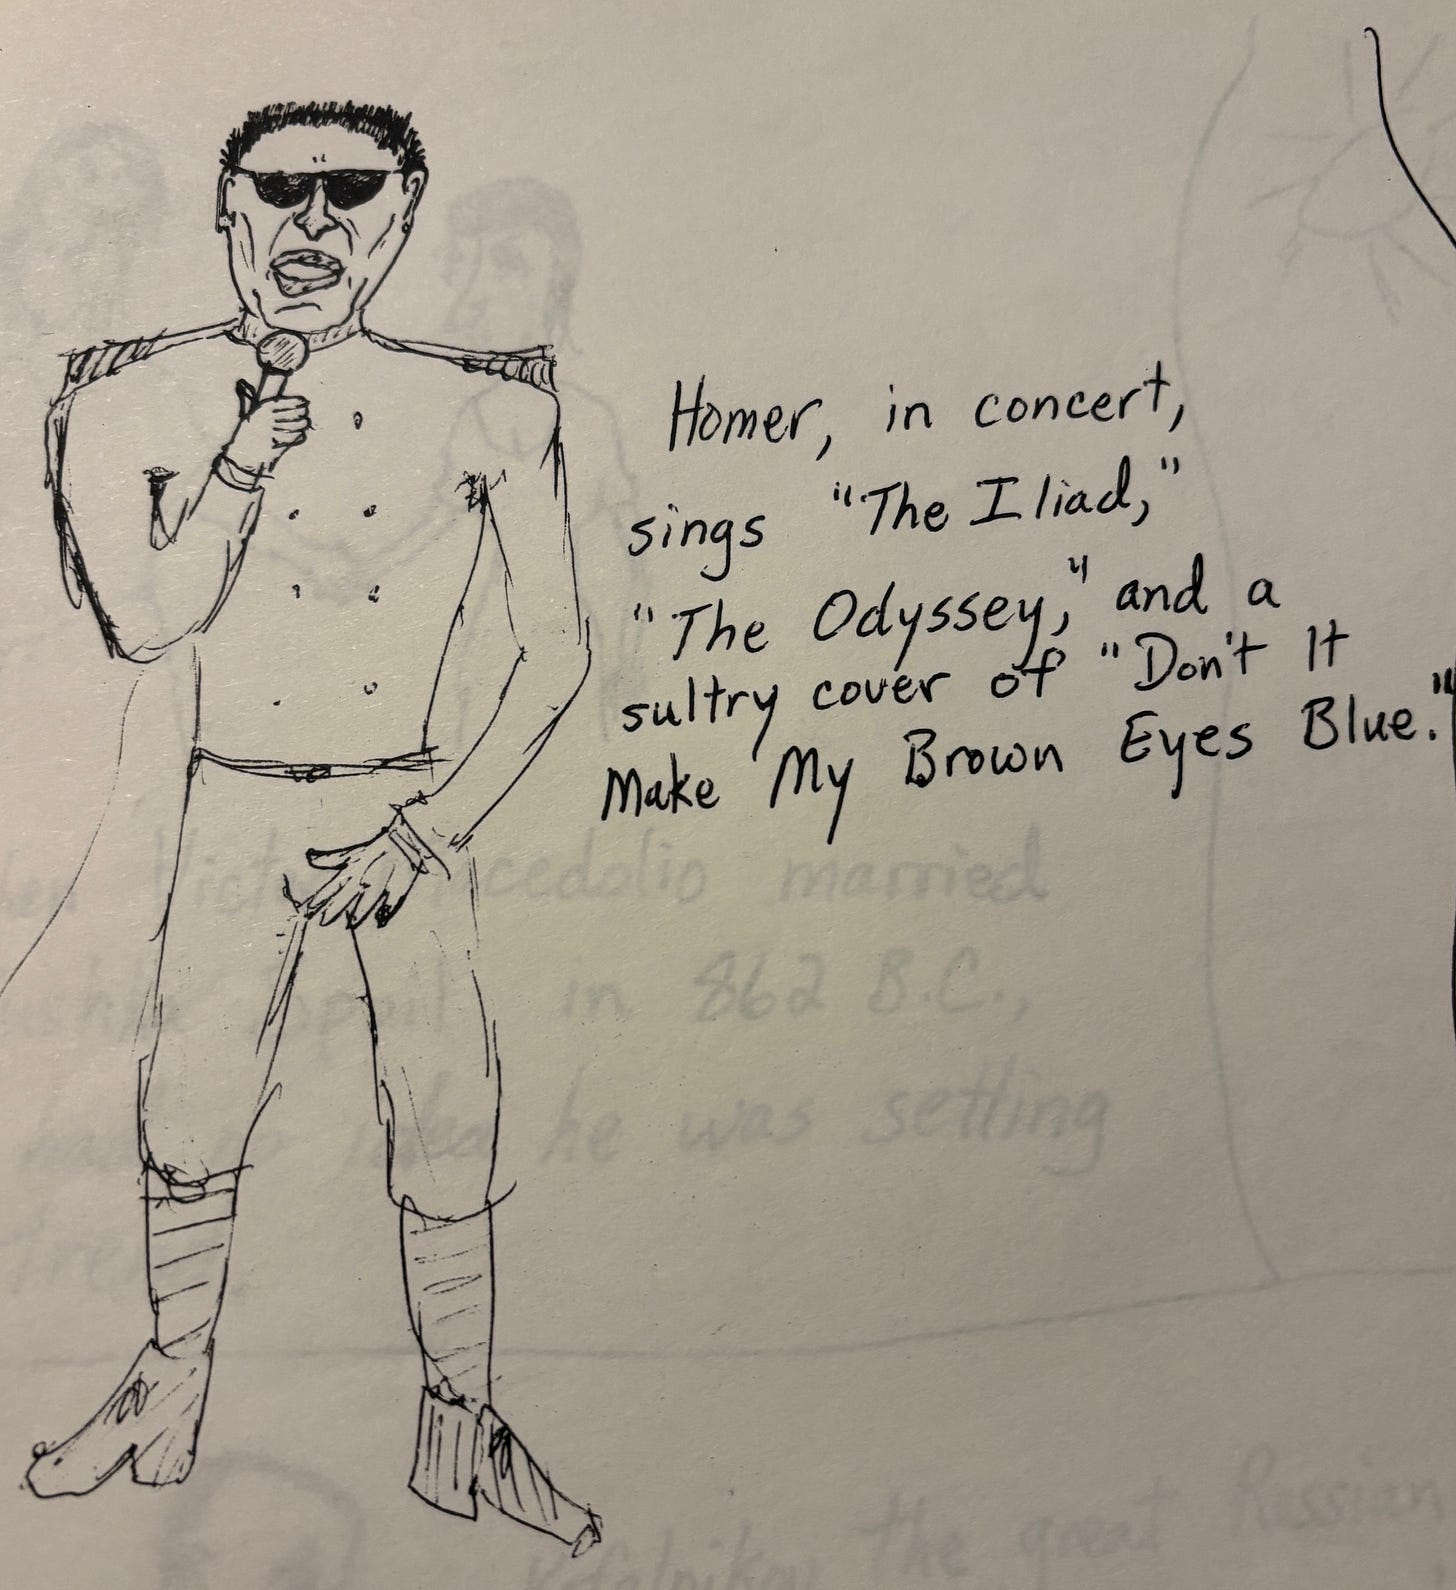 Homer, in concert,
sings "The Iliad,"
"The Odyssey," and a
sultry cover of "Don't It
Make My Brown Eyes Blue."
married
in 862 B.C.,
idea he was setting
the great Russian